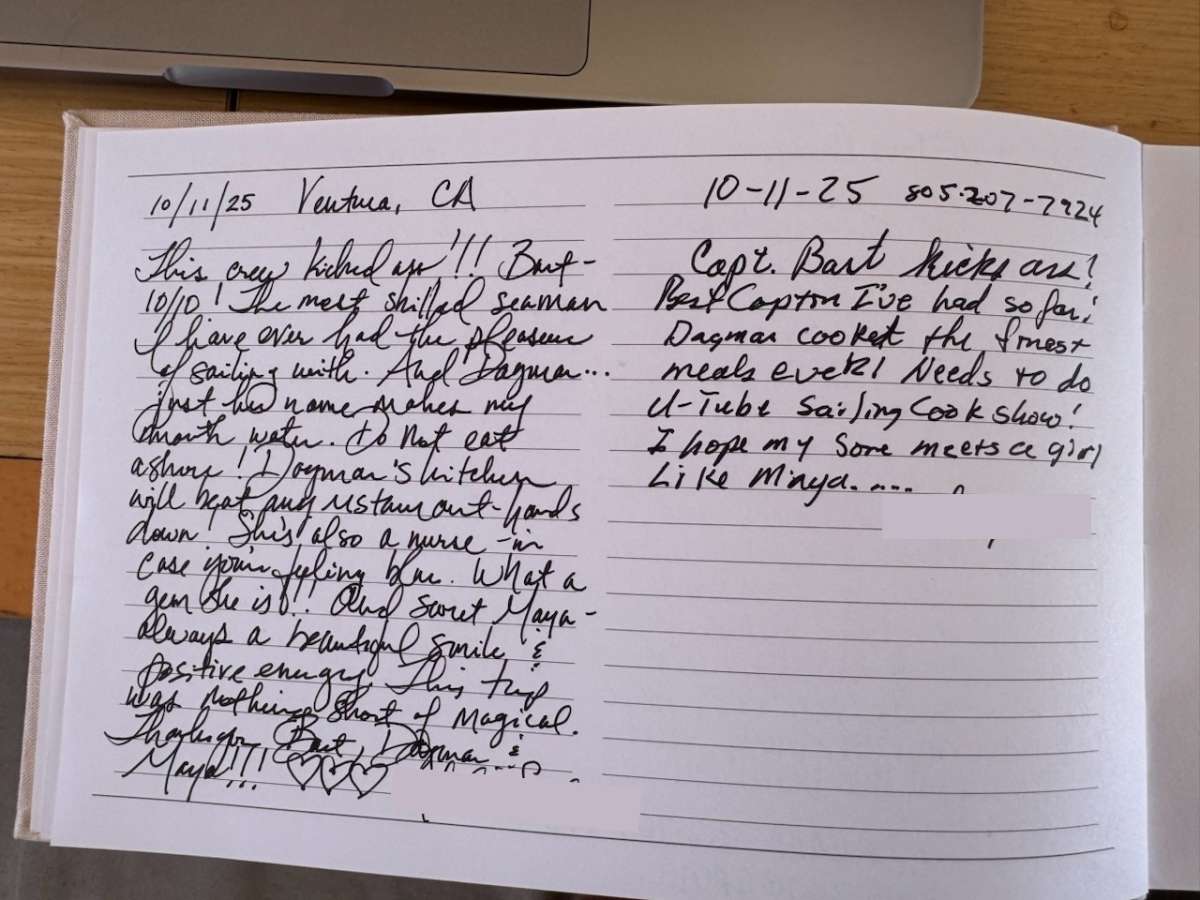 10/11/25 Ventura, CA
This crew kicked ass!!! Bart-
10/10! The most skilled seaman
I have ever had the pleasure
of sailing with. And Dagmar...
just her name makes my
mouth water. Do not eat
ashore! Dagmar's kitchen
will beat any restaurant-hands
down. She's also a nurse-in
case you're feeling blue. What a
gem she is!!! And sweet Maya-
always a beautiful smile &
positive energy. This trip
was nothing short of magical.
Thank you, Bart, Dagmar &
Maya!!! ♡♡♡
10-11-25 805-207-7924
Capt. Bart kicks ass!
Best Capton I've had so far!
Dagmar cooket the finest
meals ever! Needs to do
U-Tube Sailing Cook show!
I hope my Sone meets a girl
Like Maya.....